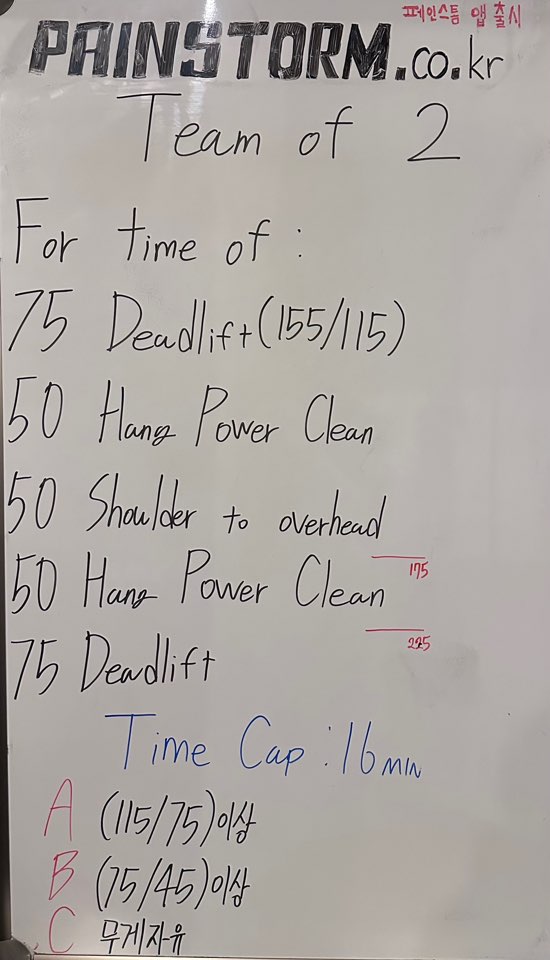 페인스톰 앱 출시
PAINSTORM.co.kr
Team of 2
For time of :
75 Deadlift (155/115)
50 Hang Power Clean
50 Shoulder to overhead
175
50 Hang Power Clean
225
75 Deadlift
Time Cap : 16 MIN
A (115/75)이상
B (75/45)이상
C 무게자유